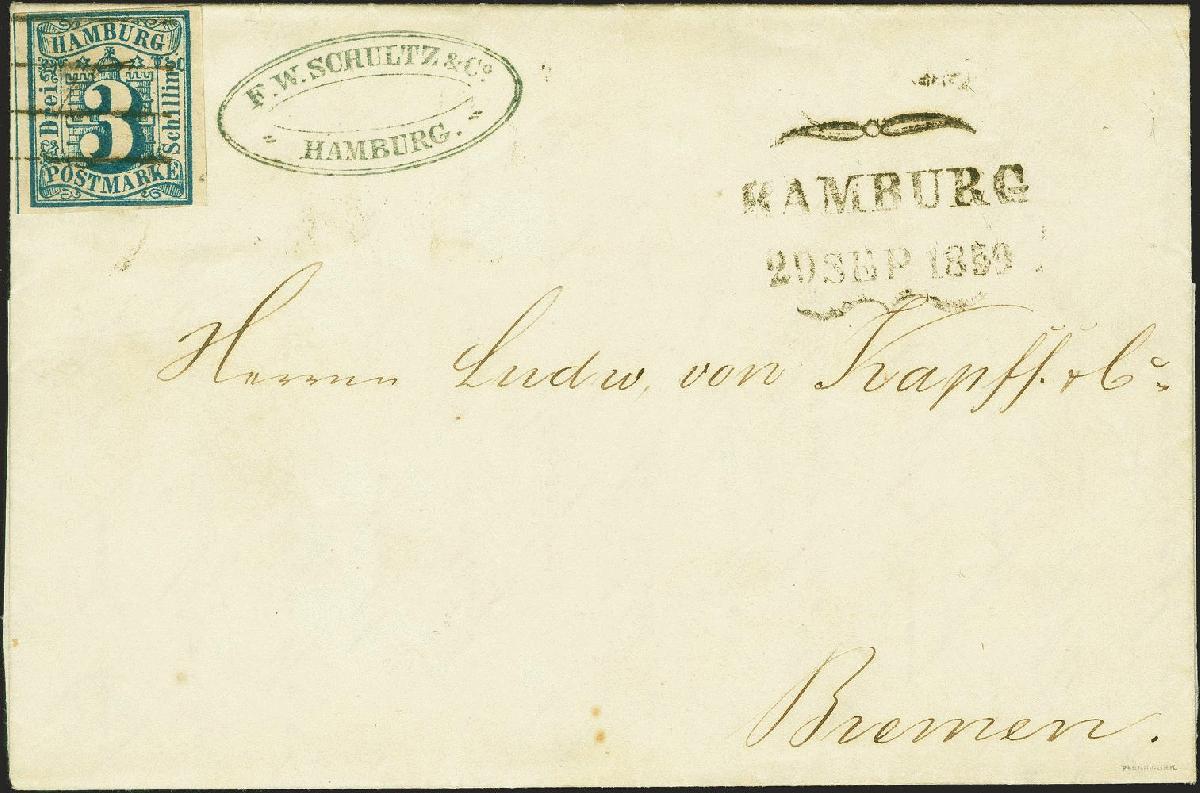 HAMBURG
Drei
3
Schilling
POSTMARKE
F. W. SCHULTZ & Co
HAMBURG.
HAMBURG
29 SEP 1859
Herrn Ludw. von Kapff. & Co
Bremen.